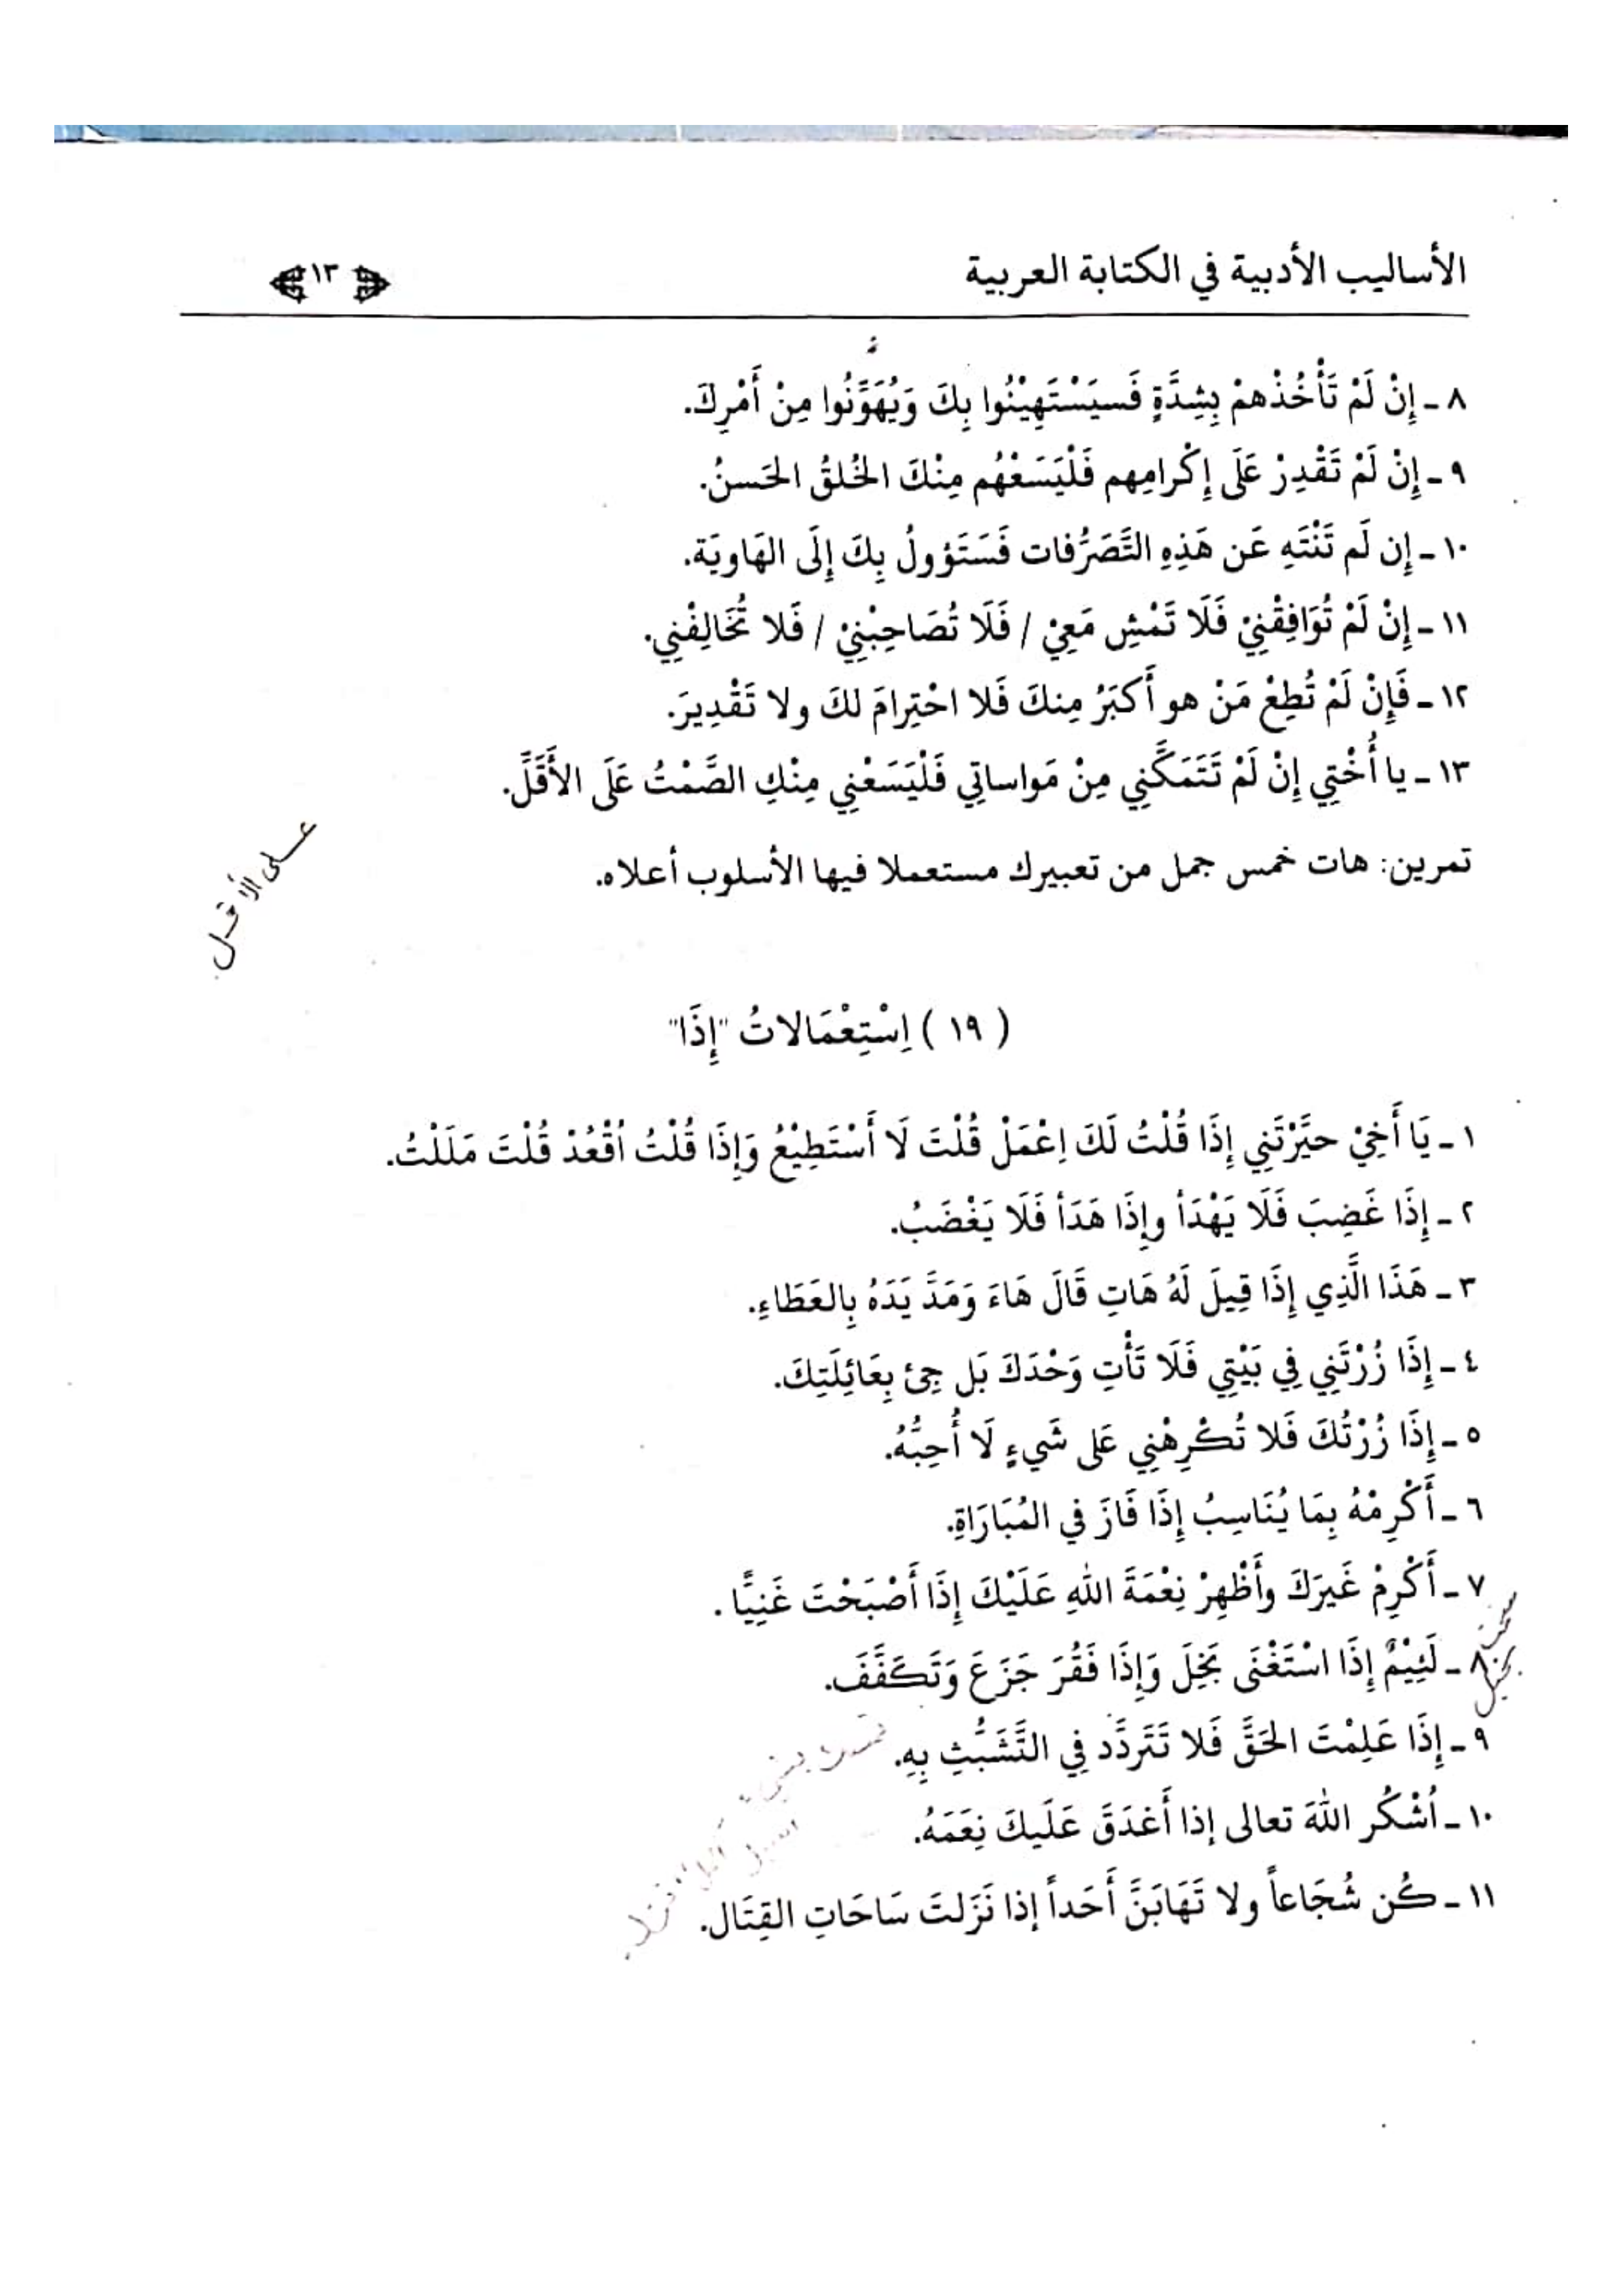 الأساليب الأدبية في الكتابة العربية ١٣
٨ ـ إِنْ لَمْ تَأْخُذْهمْ بِشِدَّةٍ فَسيَسْتَهِيْنُوا بِكَ وَيُهَوِّنُوا مِنْ أَمْرِكَ.
٩ ـ إِنْ لَمْ تَقْدِرْ عَلَى إِكْرامِهم فَلْيَسَعْهُم مِنْكَ الخُلقُ الحَسنُ.
١٠ ـ إِن لَم تَنْتَهِ عَن هَذِهِ التَّصَرُّفات فَسَتَؤولُ بِكَ إِلَى الهَاويَة.
١١ ـ إِنْ لَمْ تُوَافِقْنِيْ فَلَا تَمْشِ مَعِيْ / فَلَا تُصَاحِبْنِيْ / فَلا تُخَالِفْنِي.
١٢ ـ فَإِنْ لَمْ تُطِعْ مَنْ هو أَكبَرُ مِنكَ فَلا احْتِرامَ لكَ ولا تَقْدِيرَ.
١٣ ـ يا أُخْتِي إِنْ لَمْ تَتَمَكَّنِي مِنْ مَواساتِي فَلْيَسَعْنِي مِنْكِ الصَّمْتُ عَلَى الأَقَلِّ.
على الأقل
تمرين: هات خمس جمل من تعبيرك مستعملا فيها الأسلوب أعلاه.
( ١٩ ) اِسْتِعْمَالاتُ "إِذَا"
١ ـ يَا أَخِيْ حيَّرْتَنِي إِذَا قُلْتُ لَكَ اِعْمَلْ قُلْتَ لَا أَسْتَطِيْعُ وَإِذَا قُلْتُ اُقْعُدْ قُلْتَ مَلَلْتُ.
٢ ـ إِذَا غَضِبَ فَلَا يَهْدَأ وإِذَا هَدَأ فَلَا يَغْضَبُ.
٣ ـ هَذَا الَّذِي إِذَا قِيلَ لَهُ هَاتِ قَالَ هَاءَ وَمَدَّ يَدَهُ بِالعَطَاءِ.
٤ ـ إِذَا زُرْتَنِي فِي بَيْتِي فَلَا تَأْتِ وَحْدَكَ بَل جِئ بِعَائِلَتِكَ.
٥ ـ إِذَا زُرْتُكَ فَلا تُكْرِهْنِي عَلى شَيءٍ لَا أُحِبُّهُ.
٦ ـ أَكْرِمْهُ بِمَا يُنَاسِبُ إِذَا فَازَ في المُبَارَاةِ.
٧ ـ أَكْرِمْ غَيرَكَ وأَظْهِرْ نِعْمَةَ اللهِ عَلَيْكَ إِذَا أَصْبَحْتَ غَنِيًّا .
٨ ـ لَئِيْمٌ إِذَا اسْتَغْنَى بَخِلَ وَإِذَا فَقُرَ جَزَعَ وَتَكَفَّفَ.
٩ ـ إِذَا عَلِمْتَ الحَقَّ فَلا تَتَرَدَّد فِي التَّشَبُّثِ بِهِ.
١٠ ـ اُشْكُر اللهَ تعالى إذا أَغدَقَ عَلَيكَ نِعَمَهُ.
١١ ـ كُن شُجَاعاً ولا تَهَابَنَّ أَحَداً إذا نَزَلتَ سَاحَاتِ القِتَال.